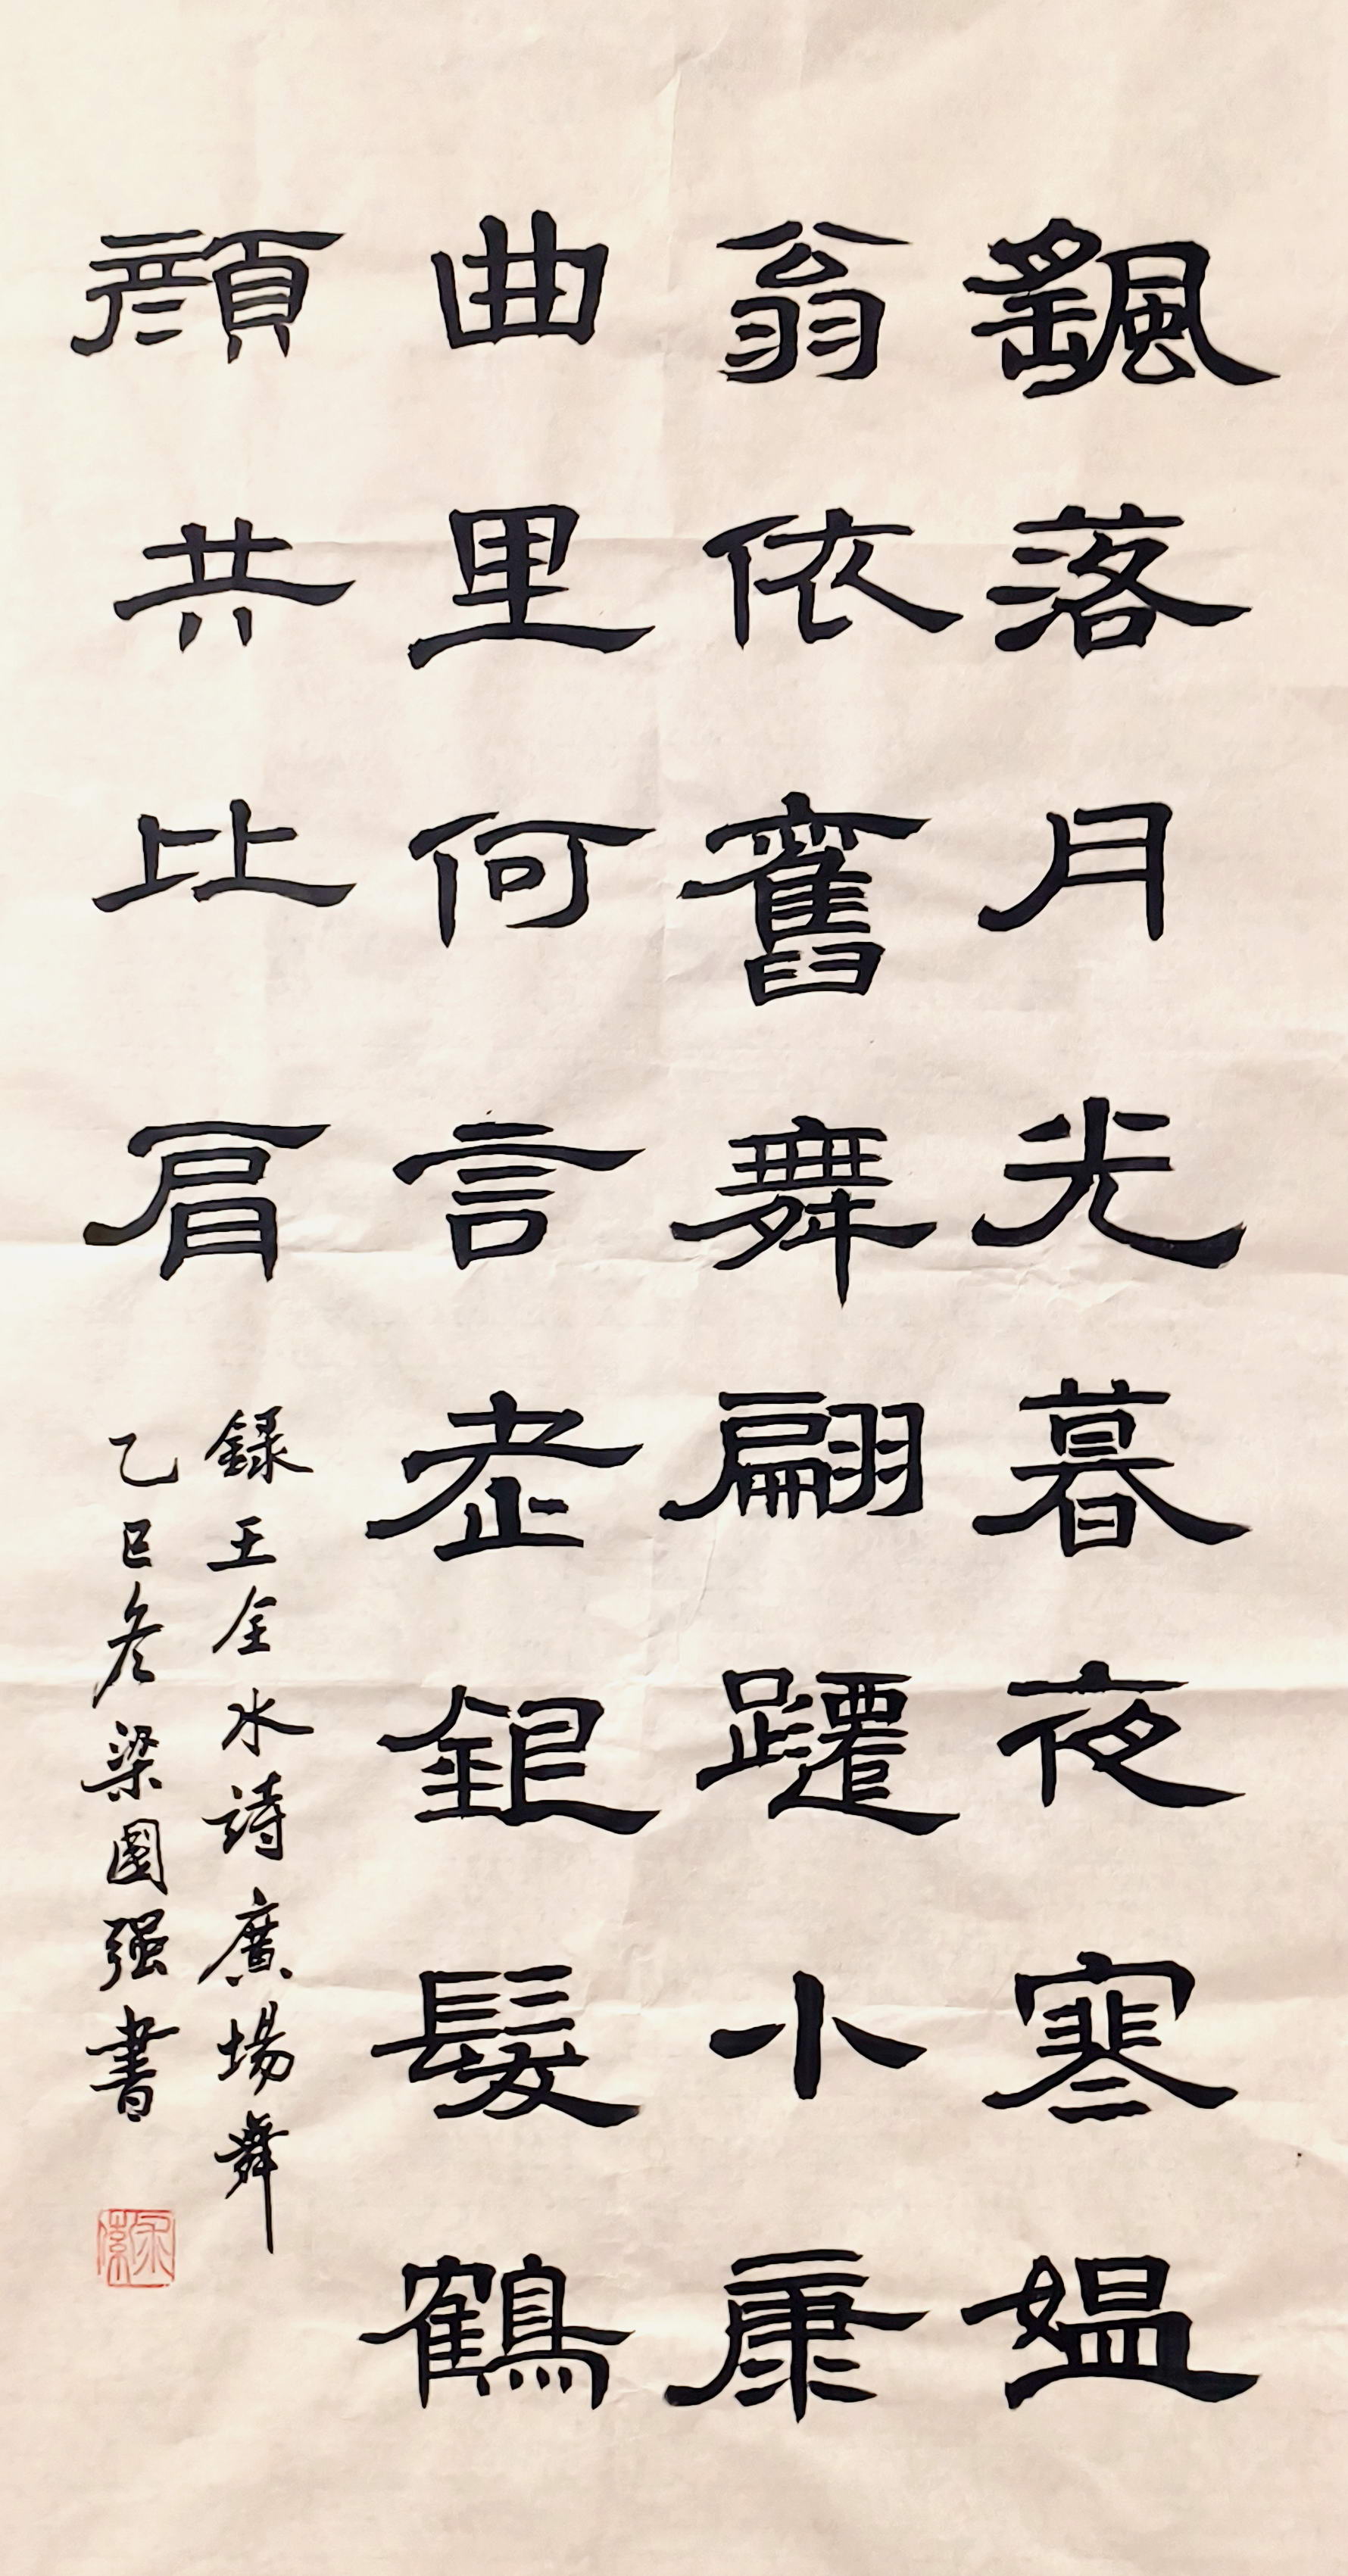 飖落月光暮夜寒媪
翁依舊舞翩躚小康
曲里何言老銀髮鶴
顏共比肩
録王全水詩廣場舞
乙巳冬梁國强書